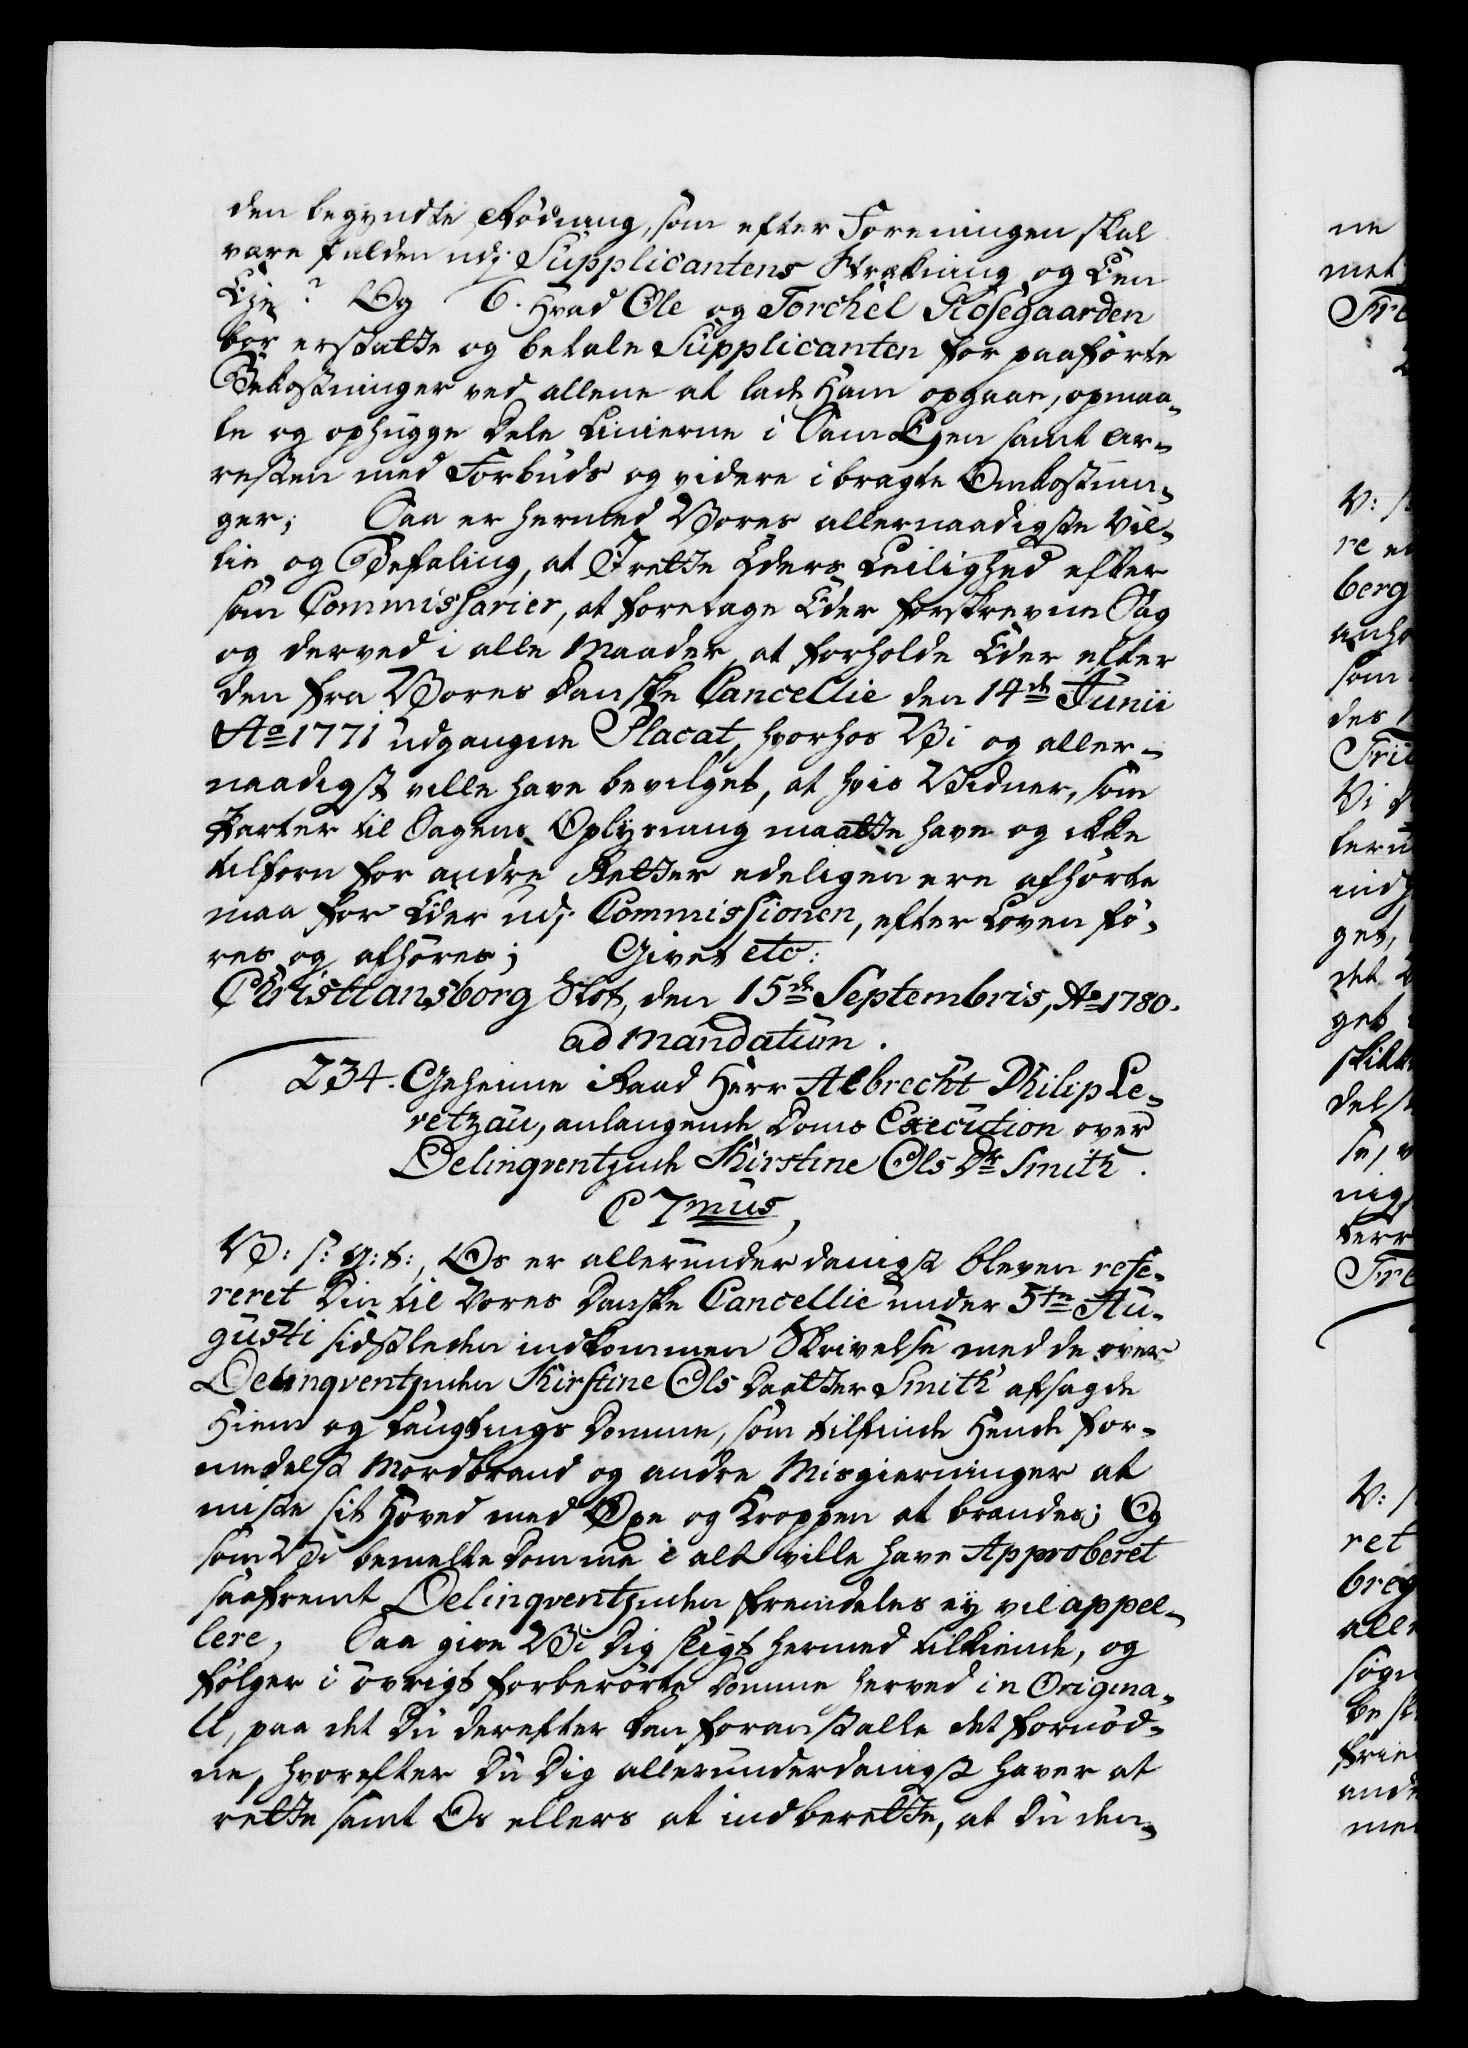 den begyndte Rödning, som efter Foreningen skal
være falden udj Supplicantens Strækning og Een
Eje? Og 6. Hvad Ole og Torchel Rosegaarden
bör erstatte og betale Supplicanten for paaförte
Bekostninger ved allene at lade Ham opgaae, opmaa-
le og ophugge Dele Linierne i Sam Ejen samt Ar-
resten med Forbuds og videre i bragte Omkostnin-
ger; Saa er hermed Vores allernaadigste Vil-
lie og Befaling, at I rette Eders Leilighed efter
som Commissarier, at foretage Eder forskrevne Sag
og derved i alle Maader at forholde Eder efter
den fra Vores Danske Cancellie den 14de Junii
Ao 1771 udgangne Placat, hvorhos Vi og aller-
naadigst ville have bevilget, at hvis Vidner, som
Parter til Sagens Oplysning maatte have og ikke
tilforn for andre Retter edeligen ere afhörte
maa for Eder udj Commissionen, efter Loven fö-
res og afhöres; Givet etc:
Christiansborg Slot, den 15de Septembris, Ao 1780.
ad Mandatum.
234. Geheime Raad Herr Albrecht Philip Le-
vetzau, anlangende Doms Execution over
Delinqventzinde Kirstine Ols Dr Smith.
C 7mus,
V: s: G: t:, Os er allerunderdanigst bleven refe-
reret Din til Vores Danske Cancellie under 5te Au-
gusti sidstleden indkommen Skrivelse med de over
Delinqventzinden Kirstine Ols Daatter Smith afsagde
Hiem og Laugtings Domme, som tilfinde Hende for-
medelst Mordbrand og andre Misgierninger at
miste sit Hoved med Öxe og Kroppen at brændes; Og
som Vi bemelte Domme i alt ville have Approberet
saafremt Delinqventzinden fremdeles ey vil appel-
lere, Saa give Vi Dig sligt hermed tilkiende, og
fölger i övrigt forberörte Domme herved in Origina-
li, paa det Du derefter kan foranstalte det fornöd-
ne, hvorefter Du Dig allerunderdanigst haver at
rette samt Os ellers at indberette, at Du den-